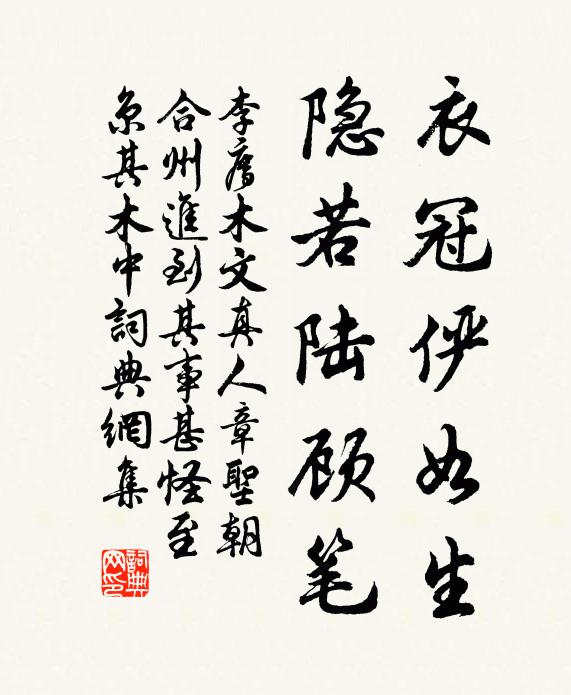 衣冠俨如生
隐若陆顾笔
李廌木文真人章聖朝
合州進到其事甚怪至
京其木中詞典網集
詞典網印